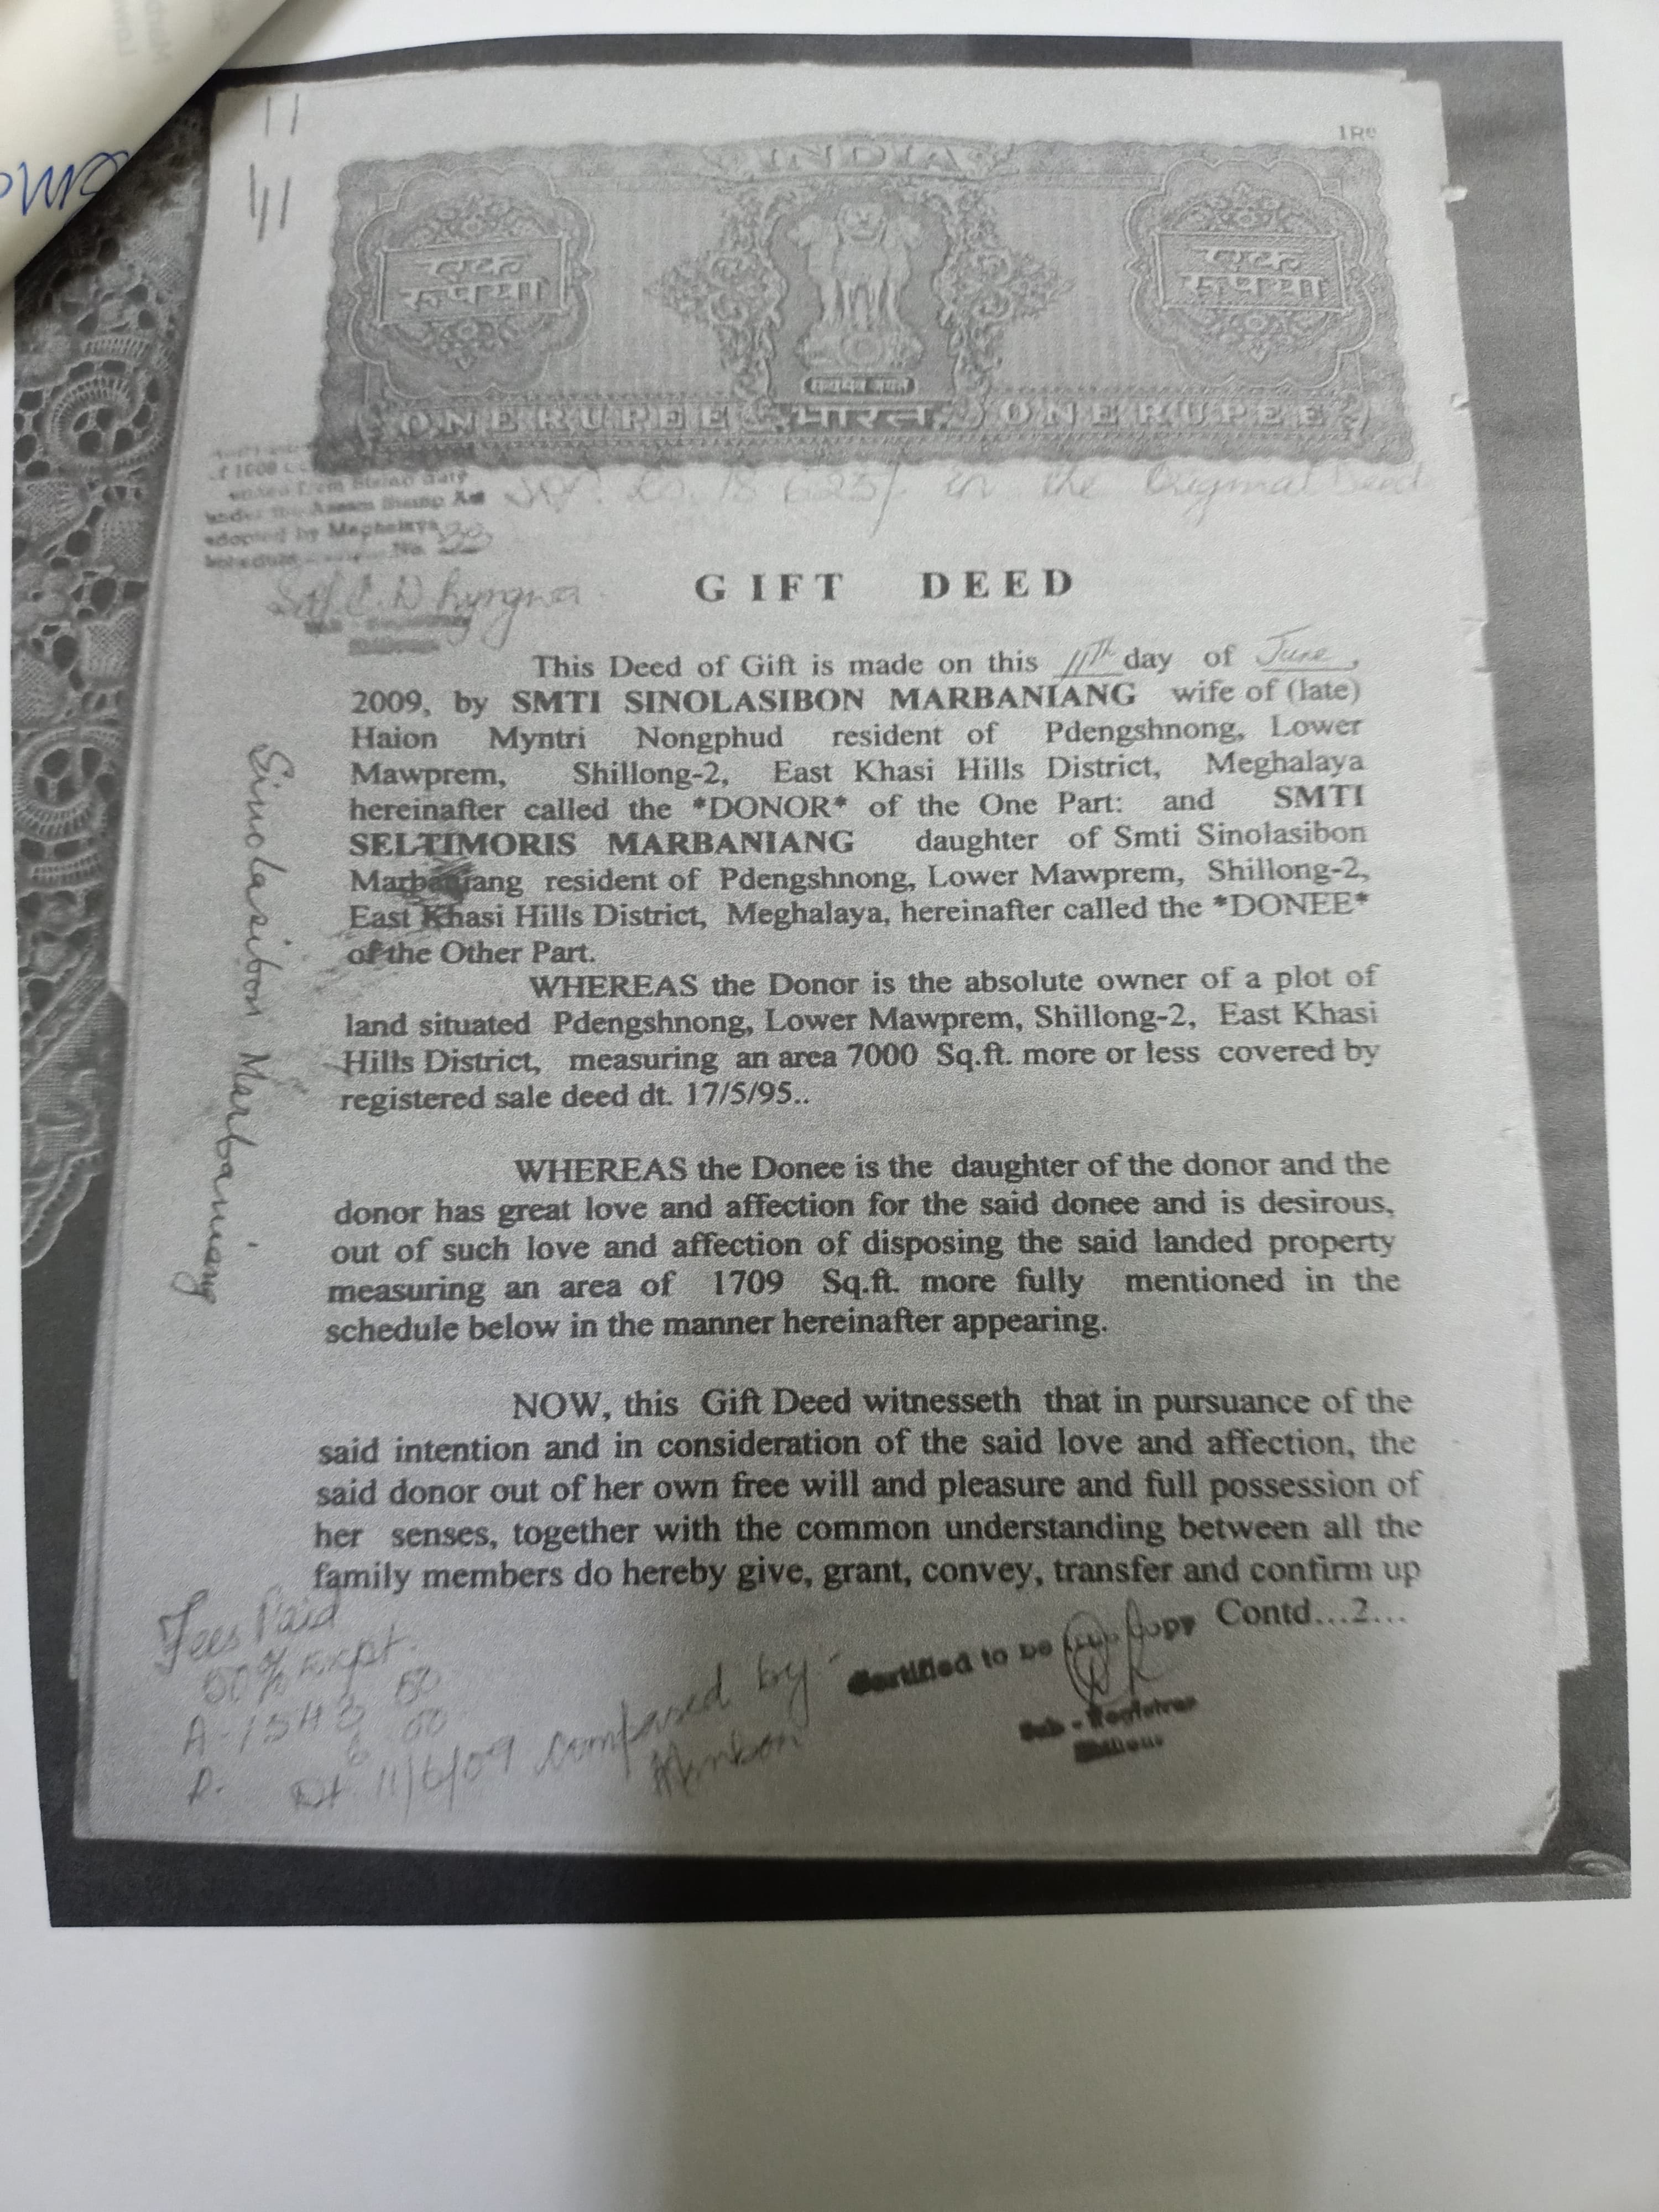 1Re
INDIA
एक
रूपया
एक
रूपया
सत्यमेव जयते
ONE RUPEE भारत ONE RUPEE
in the Original Deed
under the Assam Stamp Act
adopted by Meghalaya
Schedule No.
GIFT DEED
This Deed of Gift is made on this 11th day of June,
2009, by SMTI SINOLASIBON MARBANIANG wife of (late)
Haion Myntri Nongphud resident of Pdengshnong, Lower
Mawprem, Shillong-2, East Khasi Hills District, Meghalaya
hereinafter called the *DONOR* of the One Part: and SMTI
SELTIMORIS MARBANIANG daughter of Smti Sinolasibon
Marbaniang resident of Pdengshnong, Lower Mawprem, Shillong-2,
East Khasi Hills District, Meghalaya, hereinafter called the *DONEE*
of the Other Part.
WHEREAS the Donor is the absolute owner of a plot of
land situated Pdengshnong, Lower Mawprem, Shillong-2, East Khasi
Hills District, measuring an area 7000 Sq.ft. more or less covered by
registered sale deed dt. 17/5/95..
WHEREAS the Donee is the daughter of the donor and the
donor has great love and affection for the said donee and is desirous,
out of such love and affection of disposing the said landed property
measuring an area of 1709 Sq.ft. more fully mentioned in the
schedule below in the manner hereinafter appearing.
NOW, this Gift Deed witnesseth that in pursuance of the
said intention and in consideration of the said love and affection, the
said donor out of her own free will and pleasure and full possession of
her senses, together with the common understanding between all the
family members do hereby give, grant, convey, transfer and confirm up
Contd...2...
Sinolasibon Marbaniang
Fees Paid
50% expt.
Dt 11/6/09 Compared by
Certified to be true Copy
Sub - Registrar
Shillong